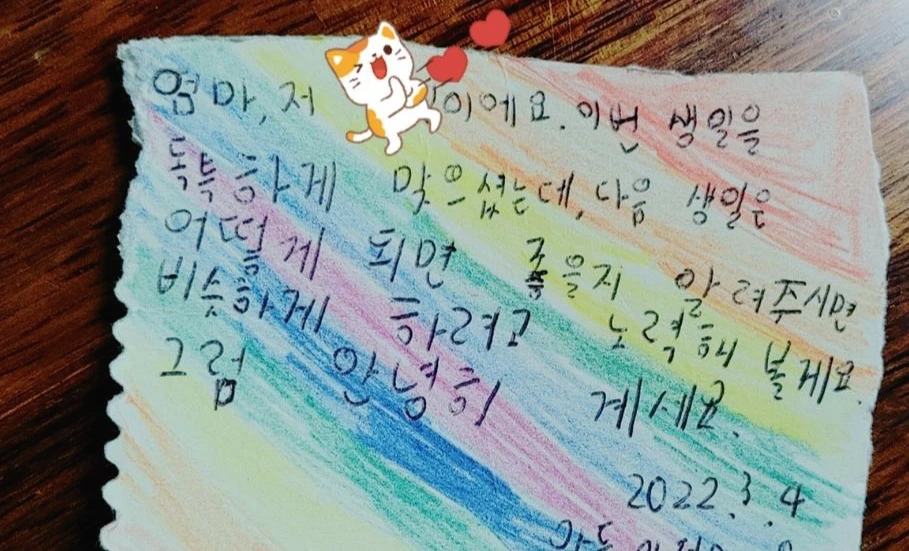 엄마, 저 이에요. 이번 생일을
독특하게 맞으셨는데, 다음 생일은
어떻게 되면 좋을지 알려주시면
비슷하게 하려고 노력해 볼게요.
그럼 안녕히 계세요.
2022.3.4